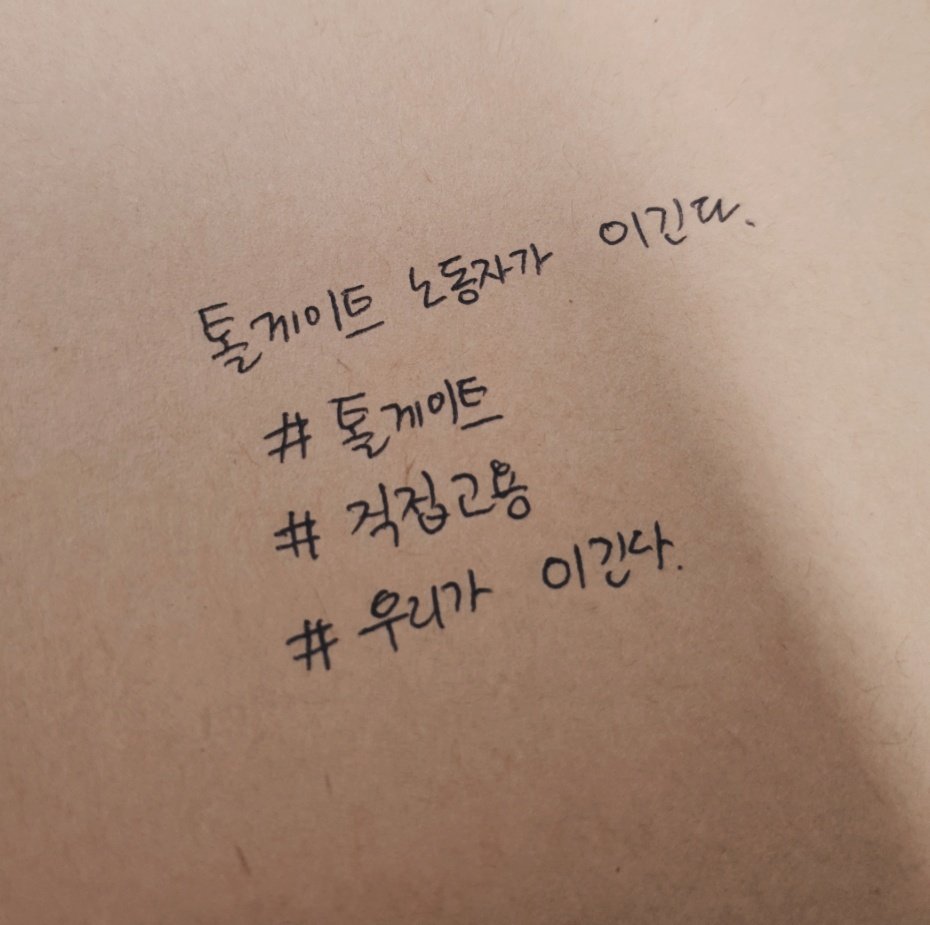 톨게이트 노동자가 이긴다.
# 톨게이트
# 직접고용
# 우리가 이긴다.